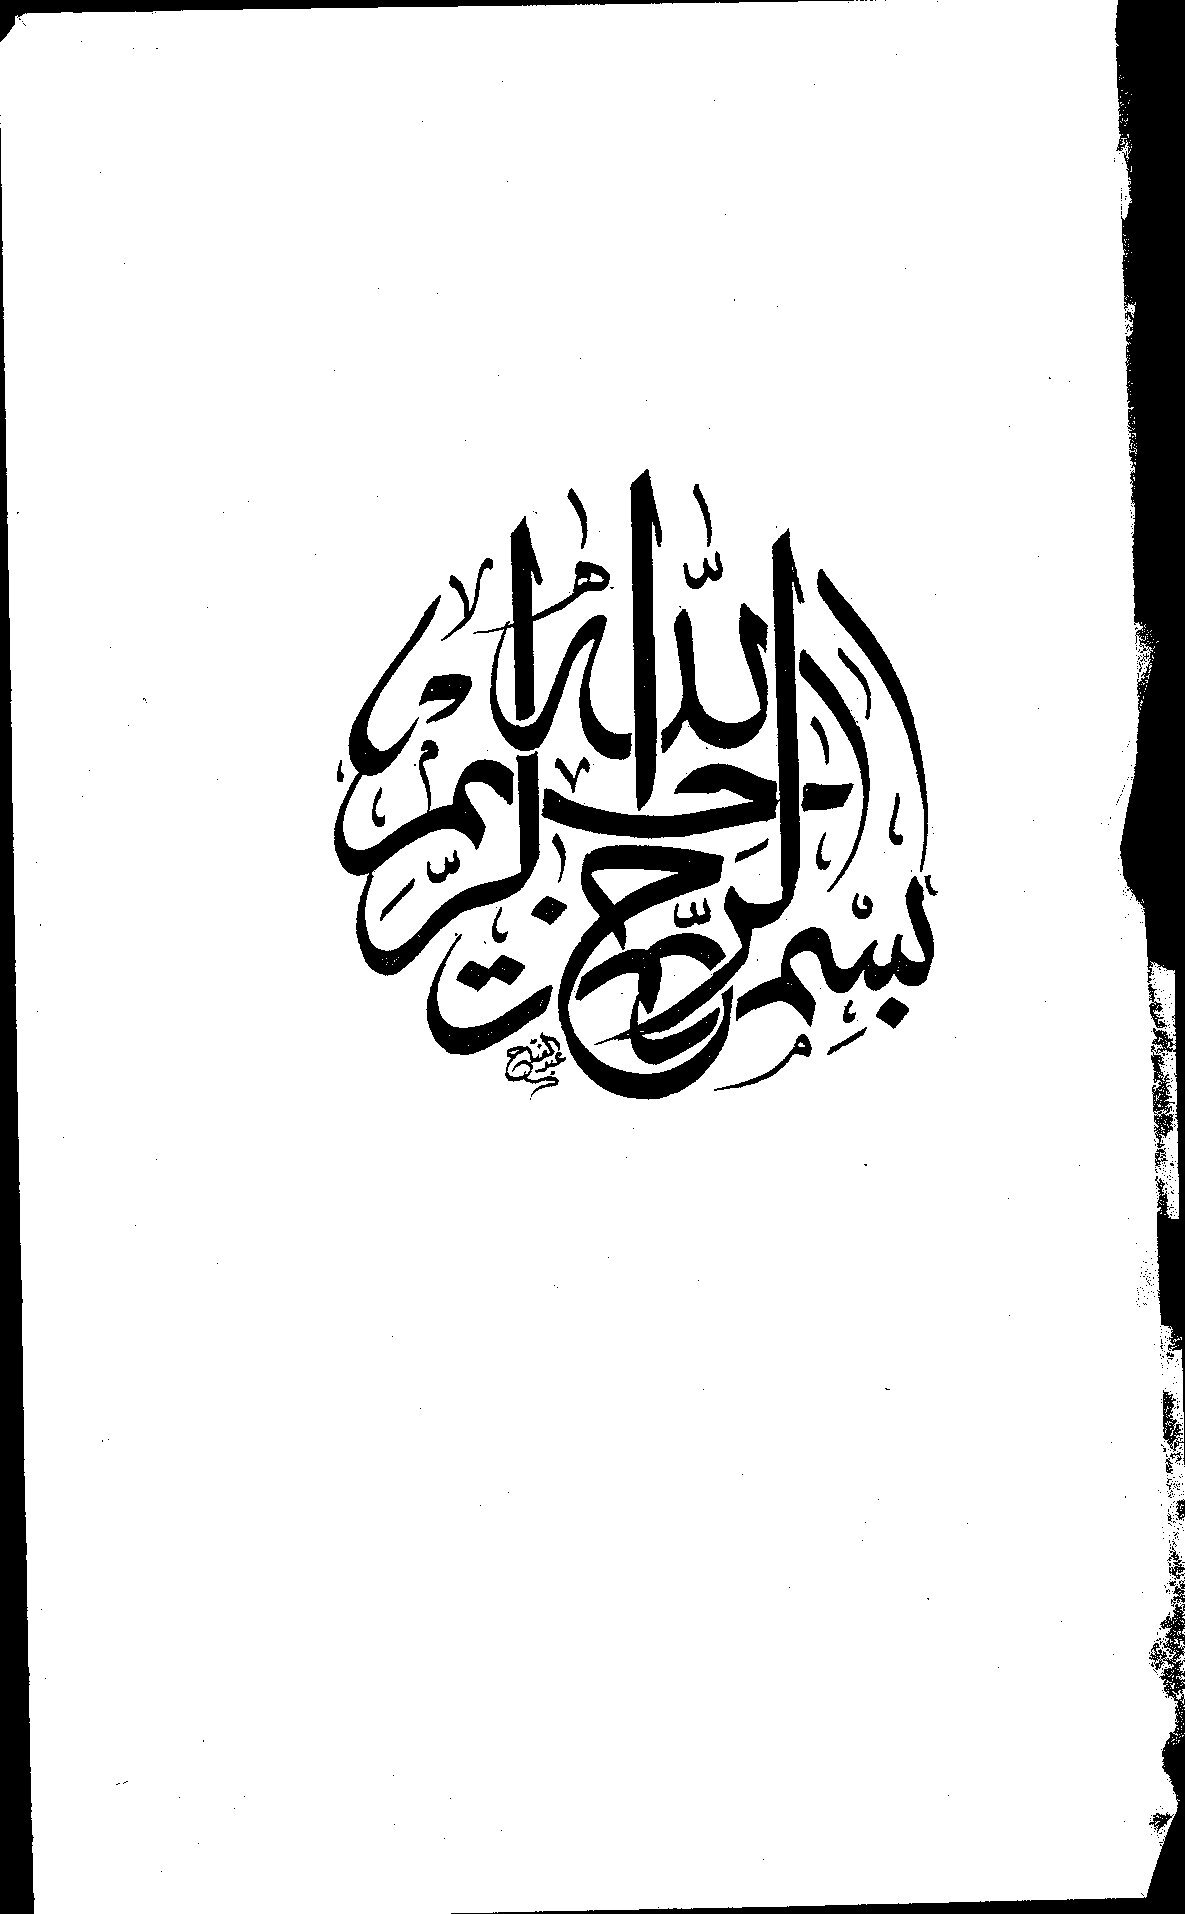 بِسْمِ اللّٰهِ الرَّحْمٰنِ الرَّحِيمِ
عبد الفتاح